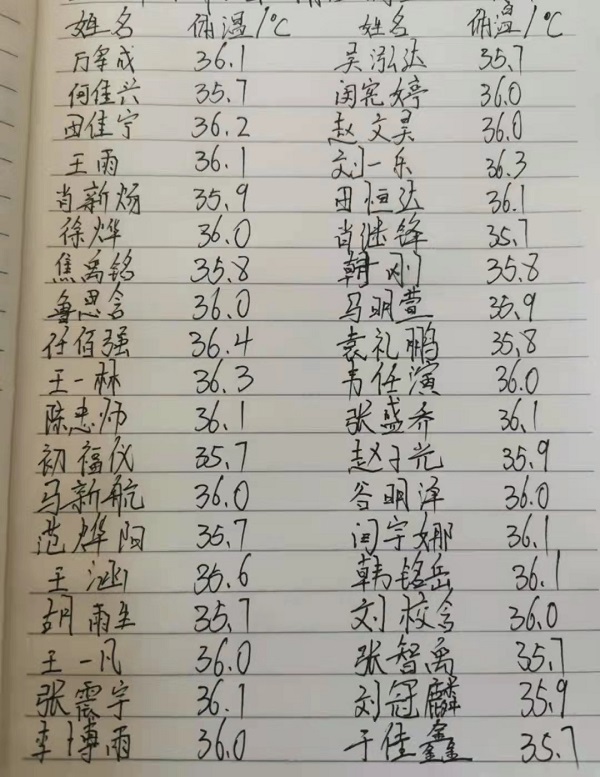 姓名 体温/℃ 姓名 体温/℃
万军成 36.1 吴泓达 35.7
何佳兴 35.7 闵宪婷 36.0
田佳宁 36.2 赵文昊 36.0
王雨 36.1 刘一乐 36.3
肖新炀 35.9 田恒达 36.1
徐烨 36.0 肖继锋 35.7
焦禹铭 35.8 韩刚 35.8
鲁思含 36.0 马明萱 35.9
任佰强 36.4 袁礼鹏 35.8
王一林 36.3 韦任演 36.0
陈志帅 36.1 张盛乔 36.1
初福仪 35.7 赵子光 35.9
马新航 36.0 谷明泽 36.0
范烨阳 35.7 闫宇娜 36.1
王涵 35.6 韩铭岳 36.1
胡雨生 35.7 刘校含 36.0
王一凡 36.0 张智禹 35.7
张震宇 36.1 刘冠麟 35.9
李博雨 36.0 于佳鑫 35.7